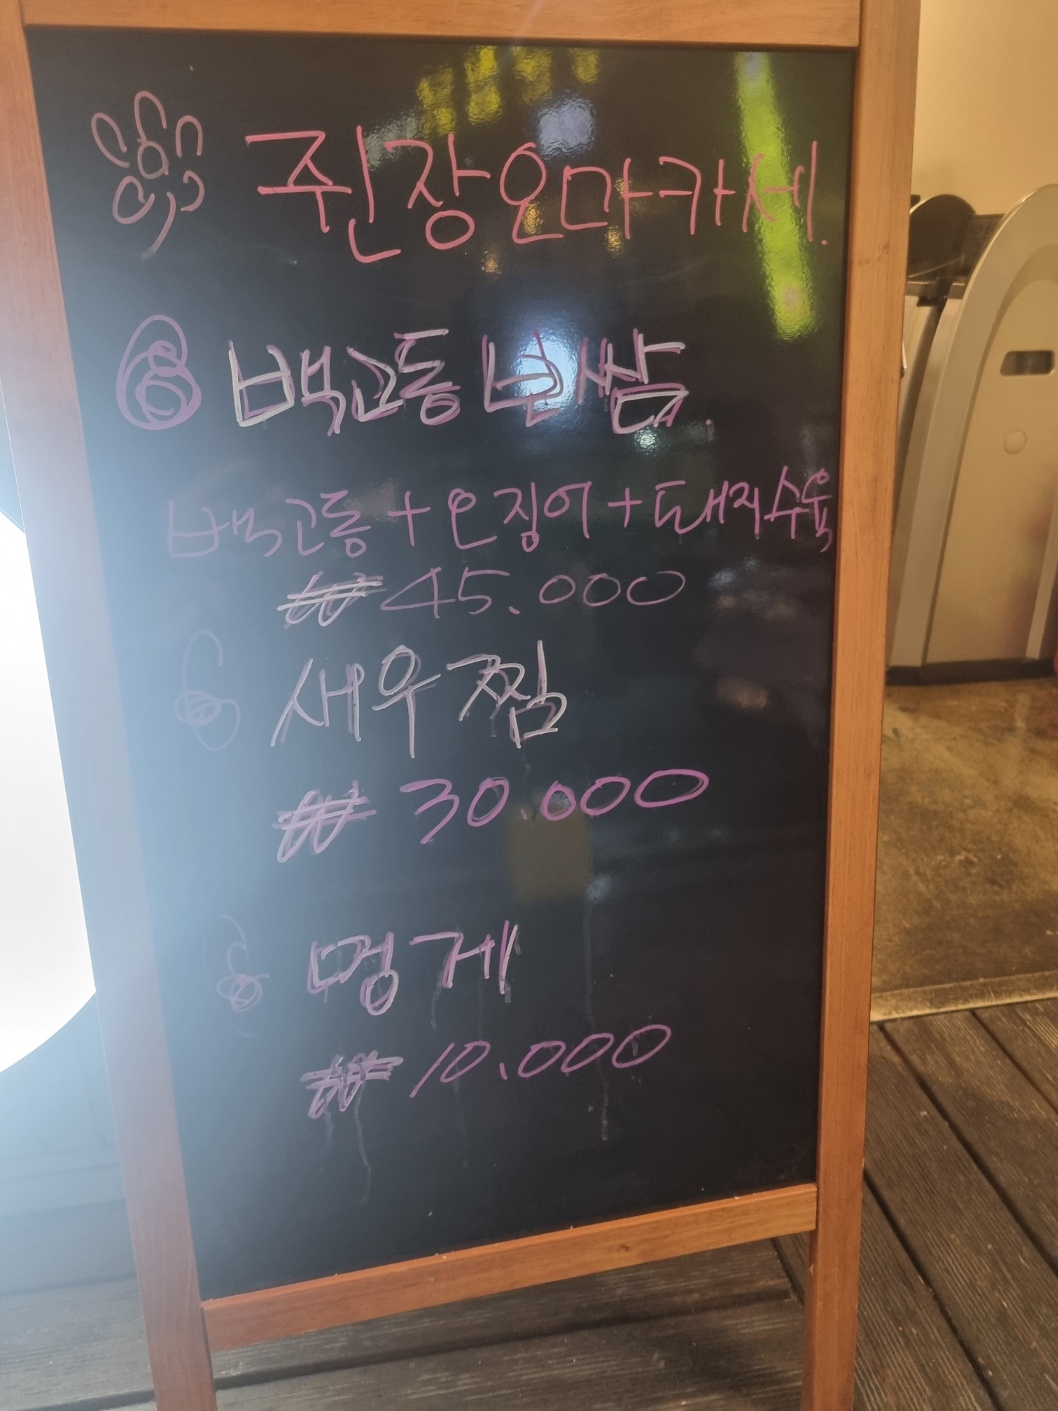 쥔장오마카세.
백고동 보쌈.
백고동+오징어+돼지수육
₩45.000
새우찜
₩30.000
멍게
₩10.000